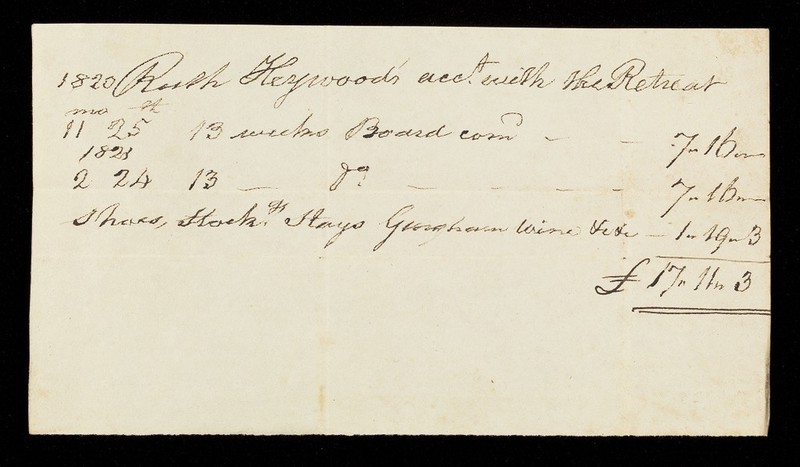 1820 Ruth Heywood's acct. with the Retreat
mo th
11 25 13 weeks Board comd — — 7 " 16 " —
1821
2 24 13 — Do. — — — — 7 " 16 " —
Shoes, Stockgs. Stays Gingham Wine &c&c — 1 " 19 " 3
£ 17 " 11 " 3